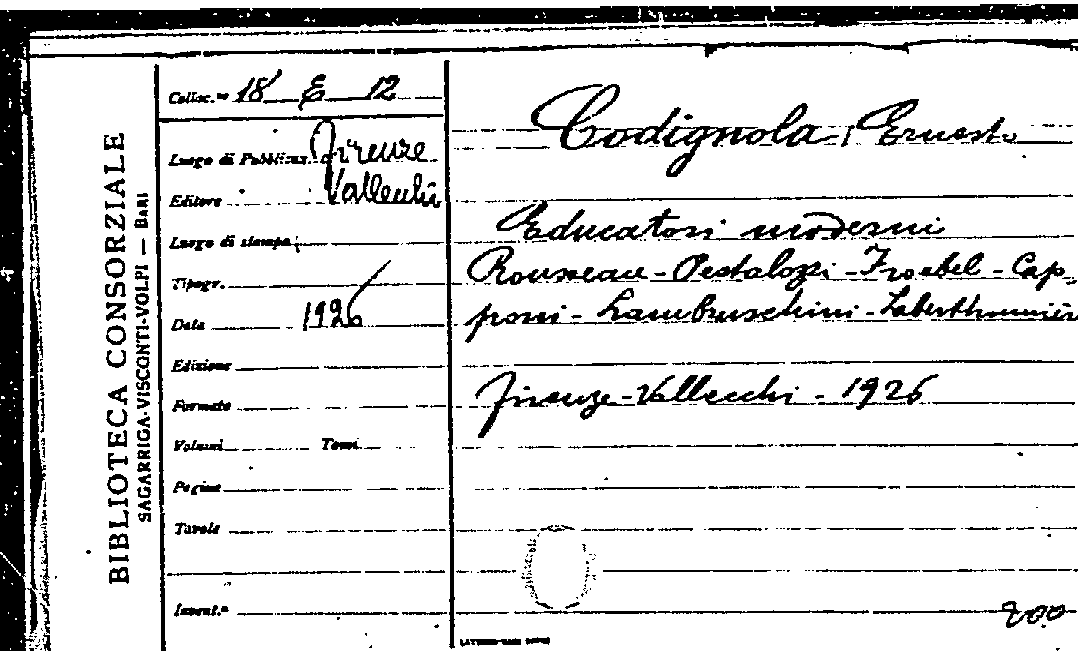 BIBLIOTECA CONSORZIALE
SAGARRIGA-VISCONTI-VOLPI — BARI
Colloc.ne 18 E 12
Luogo di Pubblicaz. Firenze
Editore Vallecchi
Luogo di stampa
Tipogr.
Data 1926
Edizione
Formato
Volumi Tomi
Pagine
Tavole
Invent.º
Codignola, Ernesto
Educatori moderni
Rousseau - Pestalozzi - Froebel - Cap-
poni - Lambruschini - Laberthonnière
Firenze - Vallecchi - 1926
200